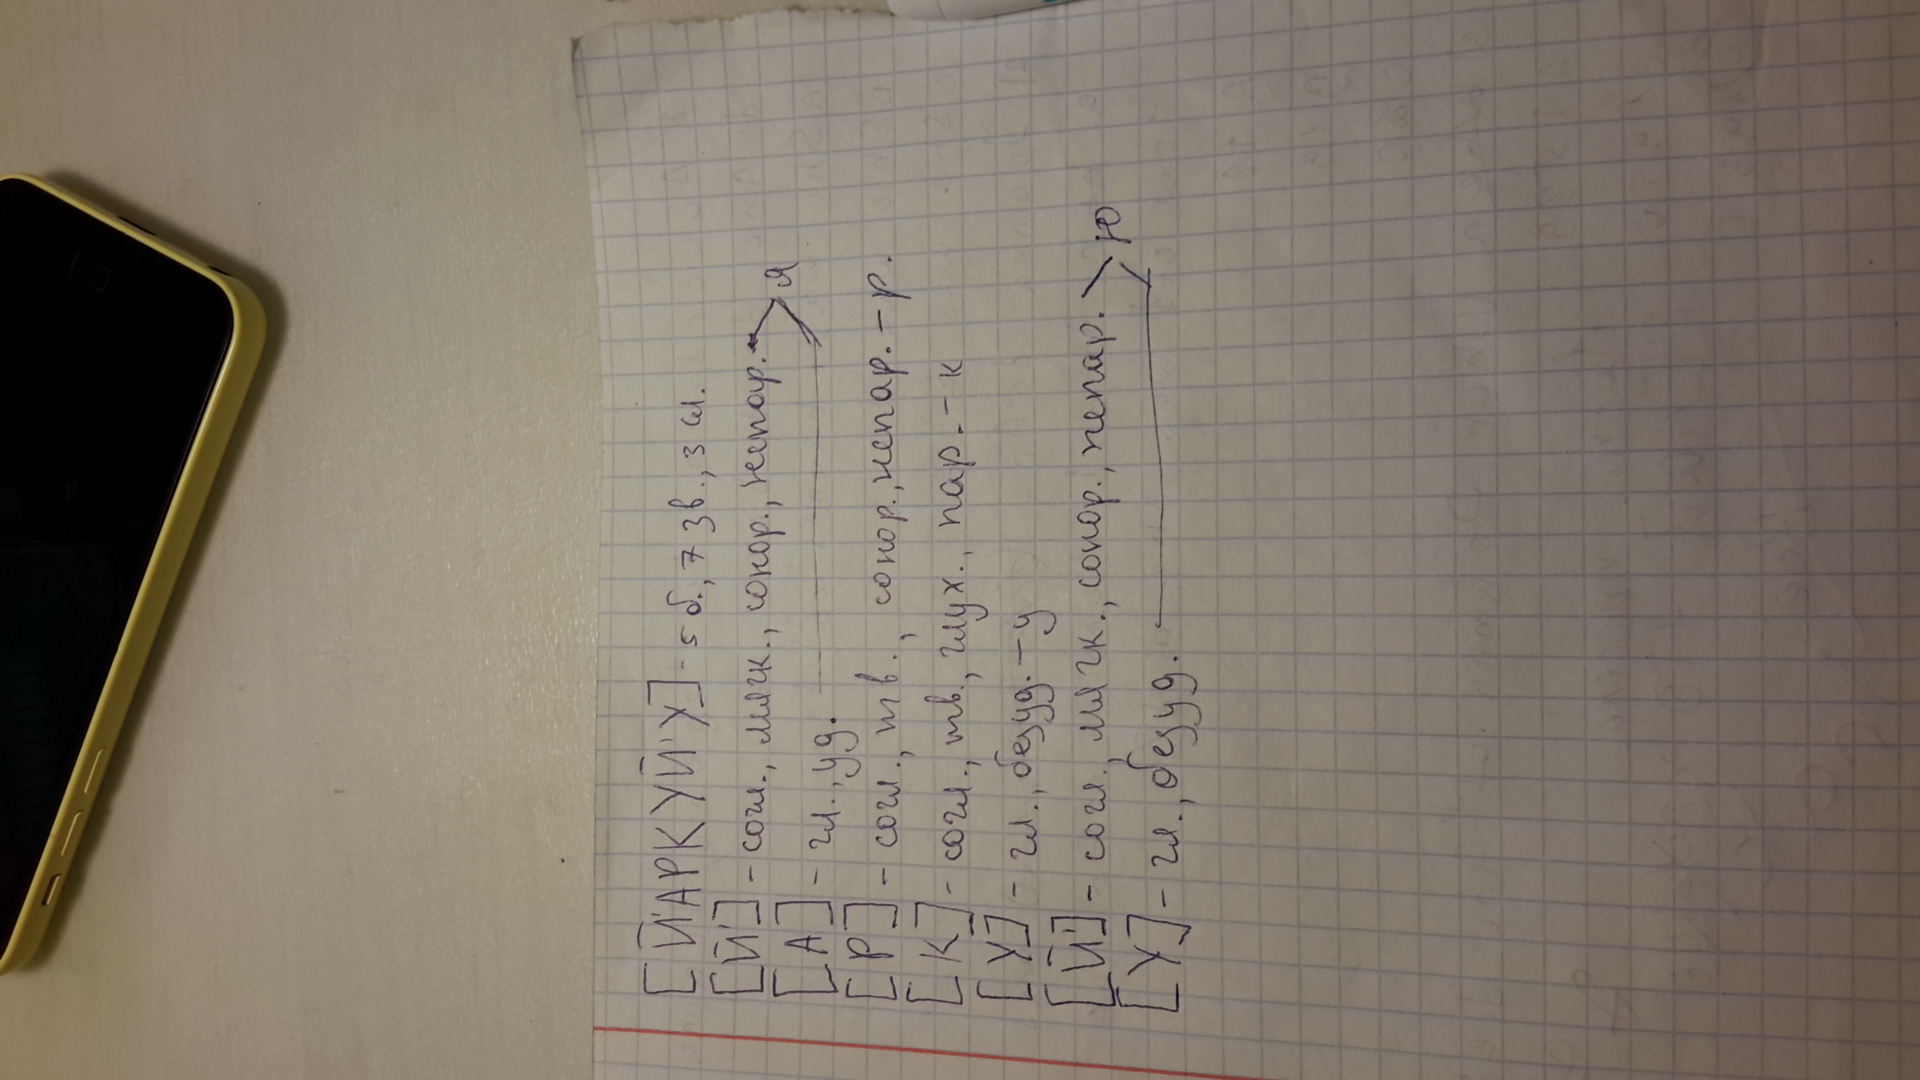 [Й'АРКУЙ'У] - 5 б., 7 зв., 3 сл.
[Й'] - согл., мягк., сонор., непар. - Я
[А] - гл., уд.
[Р] - согл., тв., сонор., непар. - р.
[К] - согл., тв., глух., пар. - к
[У] - гл., безуд. - у
[Й'] - согл., мягк., сонор., непар. Ю
[У] - гл., безуд.